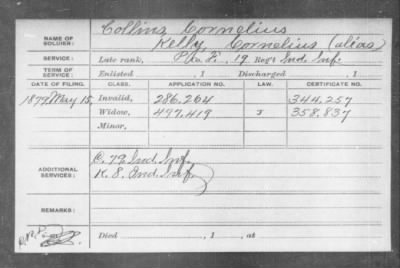 Collins Cornelius
NAME OF SOLDIER: Kelly, Cornelius (alias)
SERVICE: Late rank, P Co. F, 19 Reg't Ind. Inf.
TERM OF SERVICE: Enlisted , 1 Discharged , 1
DATE OF FILING. CLASS. APPLICATION NO. CERTIFICATE NO.
1879 May 15, Invalid, 286,264 344,257
Widow, 497,419 J 358,837
Minor,
C. 79 Ind. Inf.
ADDITIONAL SERVICES: K. 8. Ind. Inf.
REMARKS:
Died , 1 , at